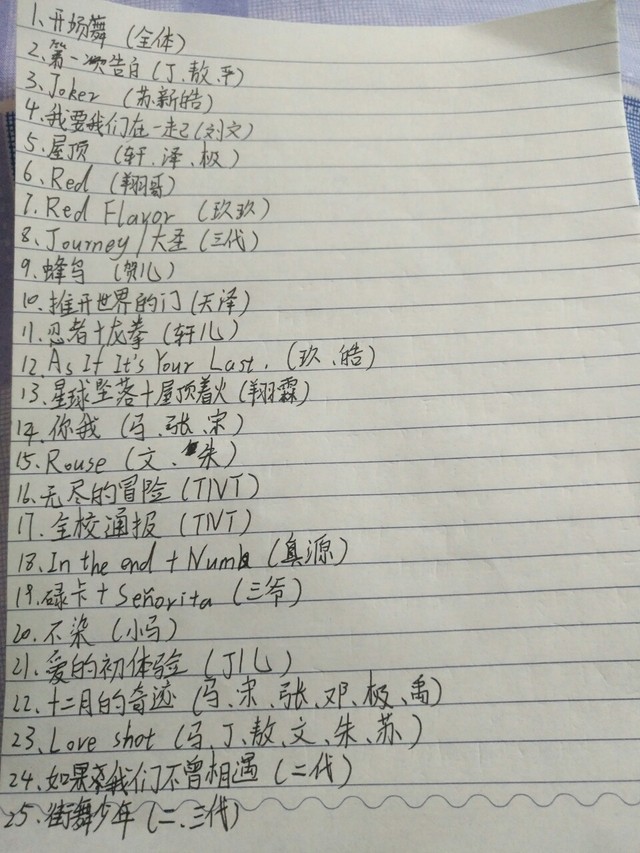 1、开场舞 (全体)
2、第一次告白 (丁、敖、严)
3、Joker (苏新皓)
4、我要我们在一起 (刘文)
5、屋顶 (轩、泽、极)
6、Red (翔哥)
7、Red Flavor (玖玖)
8、Journey/大圣 (三代)
9、蜂鸟 (贺儿)
10、推开世界的门 (天泽)
11、忍者+龙拳 (轩儿)
12、As If It's Your Last. (玖、皓)
13、星球坠落+屋顶着火 (翔霖)
14、你我 (马、张、宋)
15、Rouse (文、朱)
16、无尽的冒险 (TNT)
17、全校通报 (TNT)
18、In the end + Numb (真源)
19、碌卡+Señorita (三爷)
20、不染 (小马)
21、爱的初体验 (J儿)
22、十二月的奇迹 (马、宋、张、邓、极、禹)
23、Love shot (马、丁、敖、文、朱、苏)
24、如果我们不曾相遇 (二代)
25、街舞少年 (二、三代)